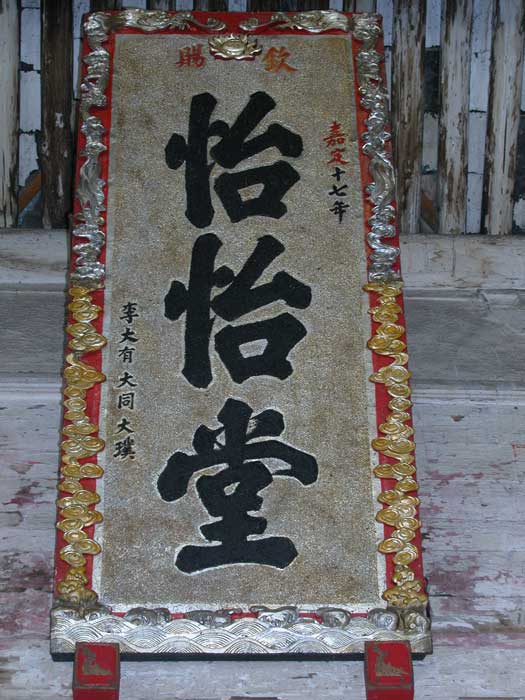 欽賜
嘉定十七年
怡怡堂
李大有大同大璞